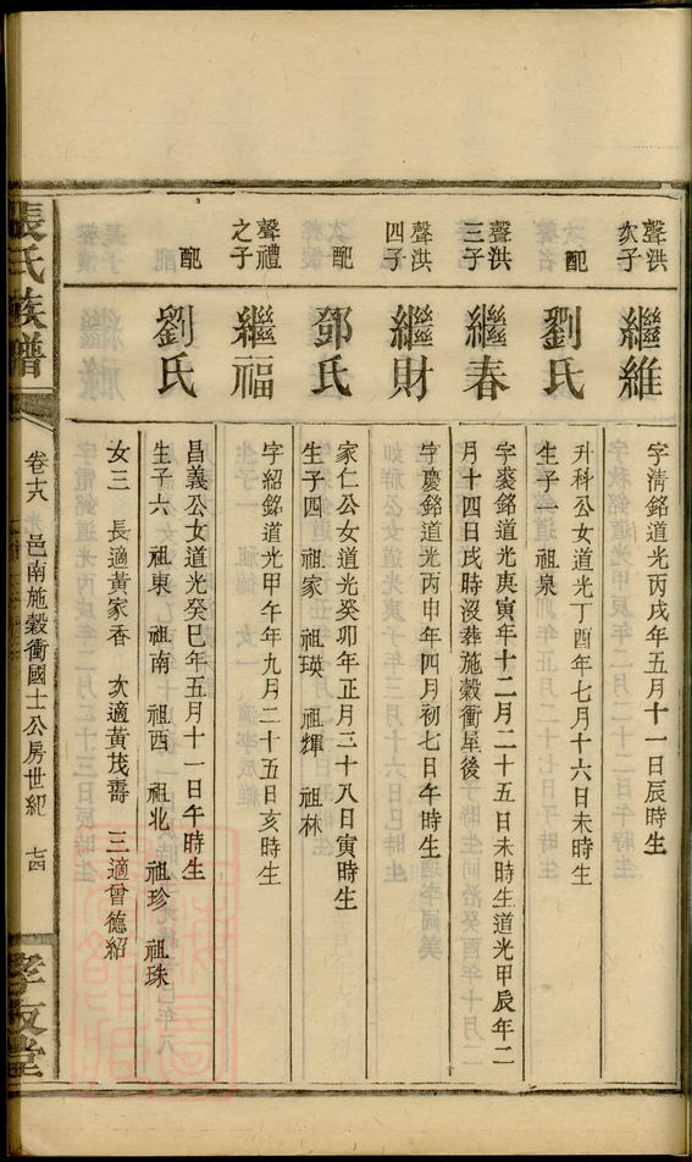 聲洪次子
繼維
字清銘道光丙戌年五月十一日辰時生
配
劉氏
升科公女道光丁酉年七月十六日未時生
生子一 祖泉
聲洪三子
繼春
字裘銘道光庚寅年十二月二十五日未時生道光甲辰年二
月十四日戌時沒葬施穀衝屋後
聲洪四子
繼財
字慶銘道光丙申年四月初七日午時生
配
鄧氏
家仁公女道光癸卯年正月三十八日寅時生
生子四 祖家 祖瑛 祖輝 祖林
聲禮之子
繼福
字紹銘道光甲午年九月二十五日亥時生
配
劉氏
昌義公女道光癸巳年五月十一日午時生
生子六 祖東 祖南 祖西 祖北 祖珍 祖珠
女三 長適黃家香 次適黃茂壽 三適曾德紹
張氏族譜
卷十八 邑南施穀衝國士公房世紀 七四
孝友堂